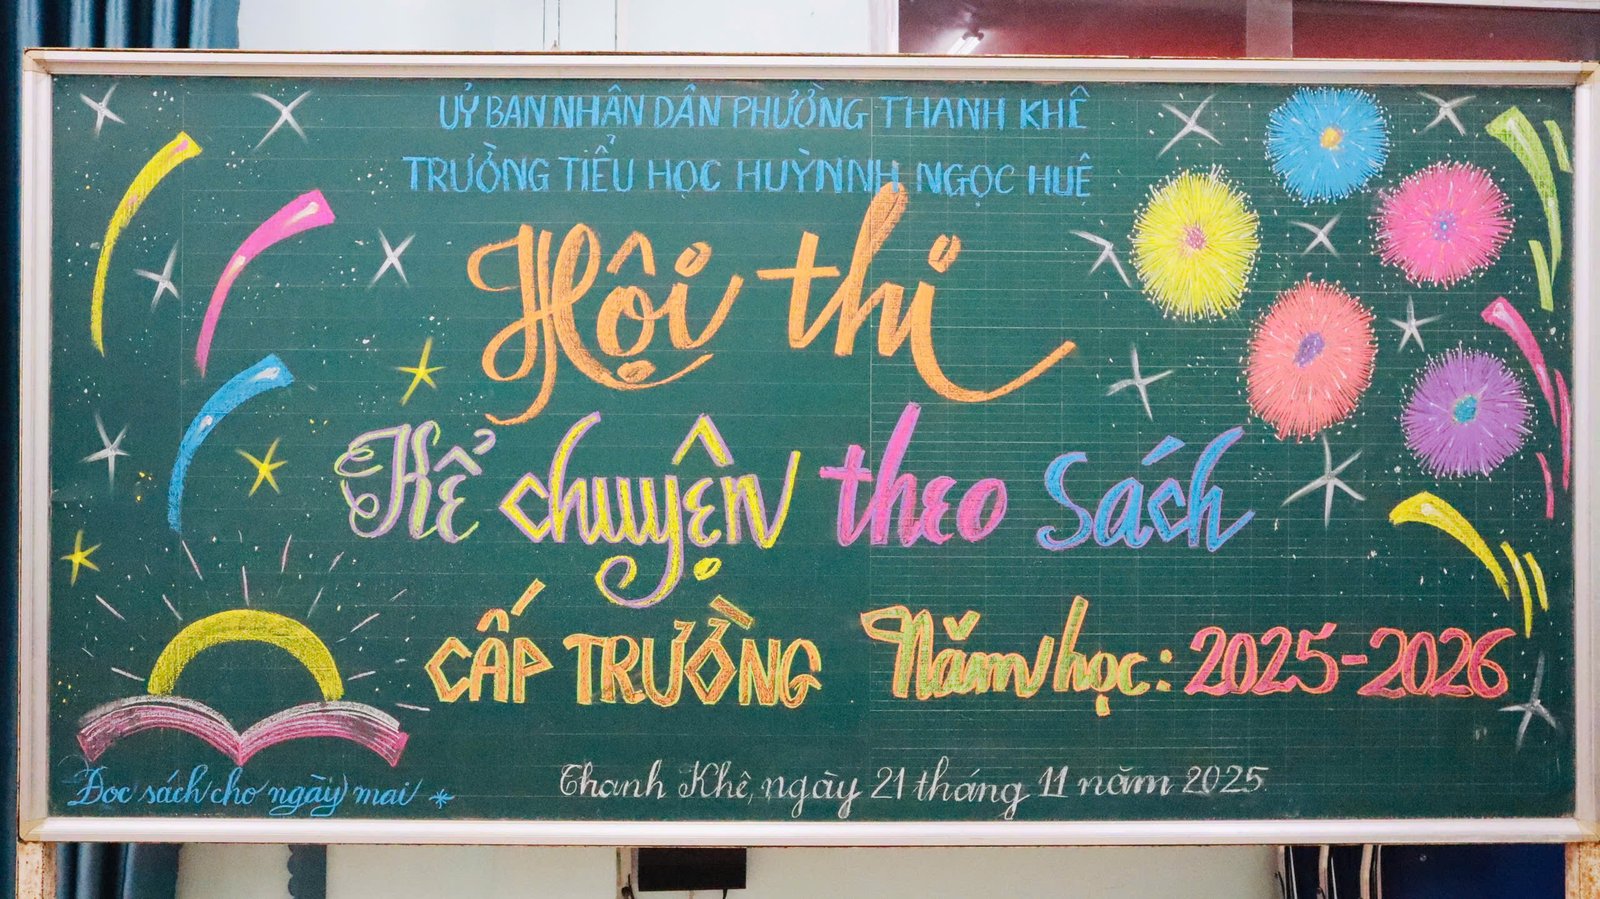 UỶ BAN NHÂN DÂN PHƯỜNG THANH KHÊ
TRƯỜNG TIỂU HỌC HUỲNNH NGỌC HUÊ
Hội thi
Kể chuyện theo Sách
CẤP TRƯỜNG Năm học: 2025-2026
Đọc sách cho ngày mai
Thanh Khê, ngày 21 tháng 11 năm 2025